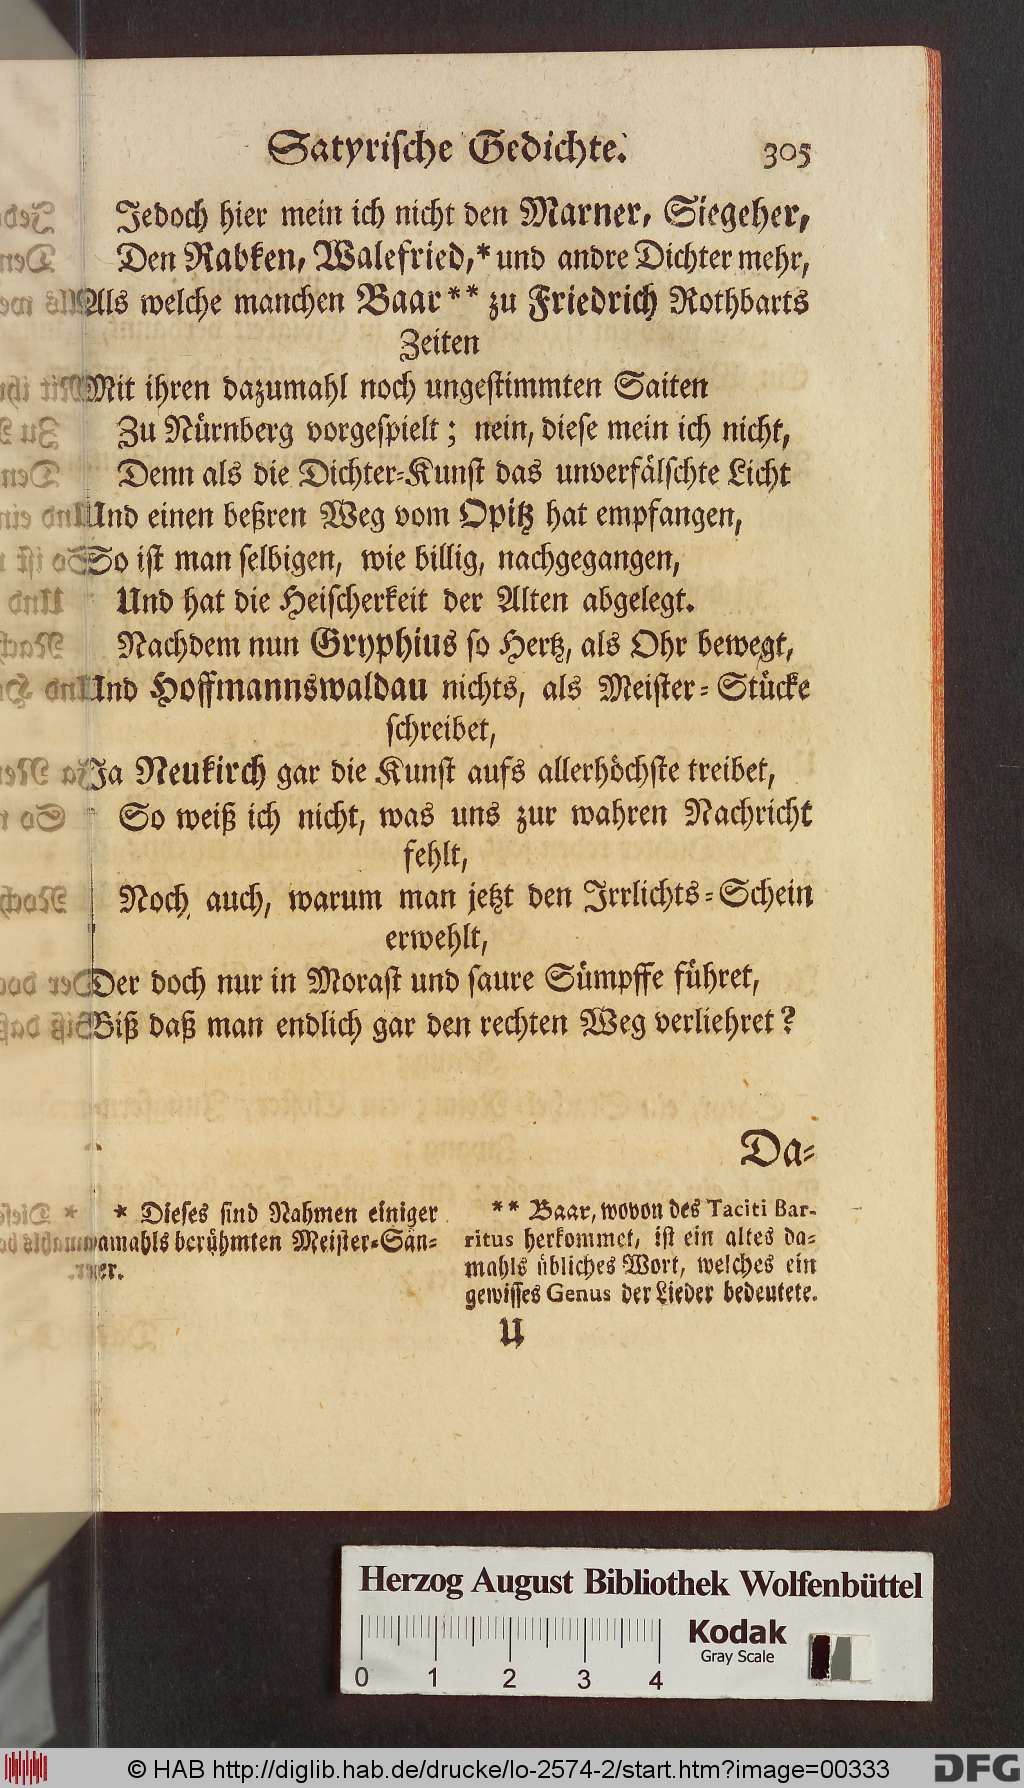 Satyrische Gedichte. 305
Jedoch hier mein ich nicht den Marner, Siegeher,
Den Rabken, Walefried,* und andre Dichter mehr,
Als welche manchen Baar** zu Friedrich Rothbarts
Zeiten
Mit ihren dazumahl noch ungestimmten Saiten
Zu Nürnberg vorgespielt; nein, diese mein ich nicht,
Denn als die Dichter-Kunst das unverfälschte Licht
Und einen beßren Weg vom Opitz hat empfangen,
So ist man selbigen, wie billig, nachgegangen,
Und hat die Heischerkeit der Alten abgelegt.
Nachdem nun Gryphius so Hertz, als Ohr bewegt,
Und Hoffmannswaldau nichts, als Meister-Stücke
schreibet,
Ja Neukirch gar die Kunst aufs allerhöchste treibet,
So weiß ich nicht, was uns zur wahren Nachricht
fehlt,
Noch auch, warum man jetzt den Irrlichts-Schein
erwehlt,
Der doch nur in Morast und saure Sümpffe führet,
Biß daß man endlich gar den rechten Weg verliehret?
Da-
* Dieses sind Nahmen einiger
damahls berühmten Meister-Sän-
ger.
** Baar, wovon des Taciti Bar-
ritus herkommet, ist ein altes da-
mahls übliches Wort, welches ein
gewisses Genus der Lieder bedeutete.
U
Herzog August Bibliothek Wolfenbüttel
0 1 2 3 4
Kodak
Gray Scale
© HAB http://diglib.hab.de/drucke/lo-2574-2/start.htm?image=00333
DFG